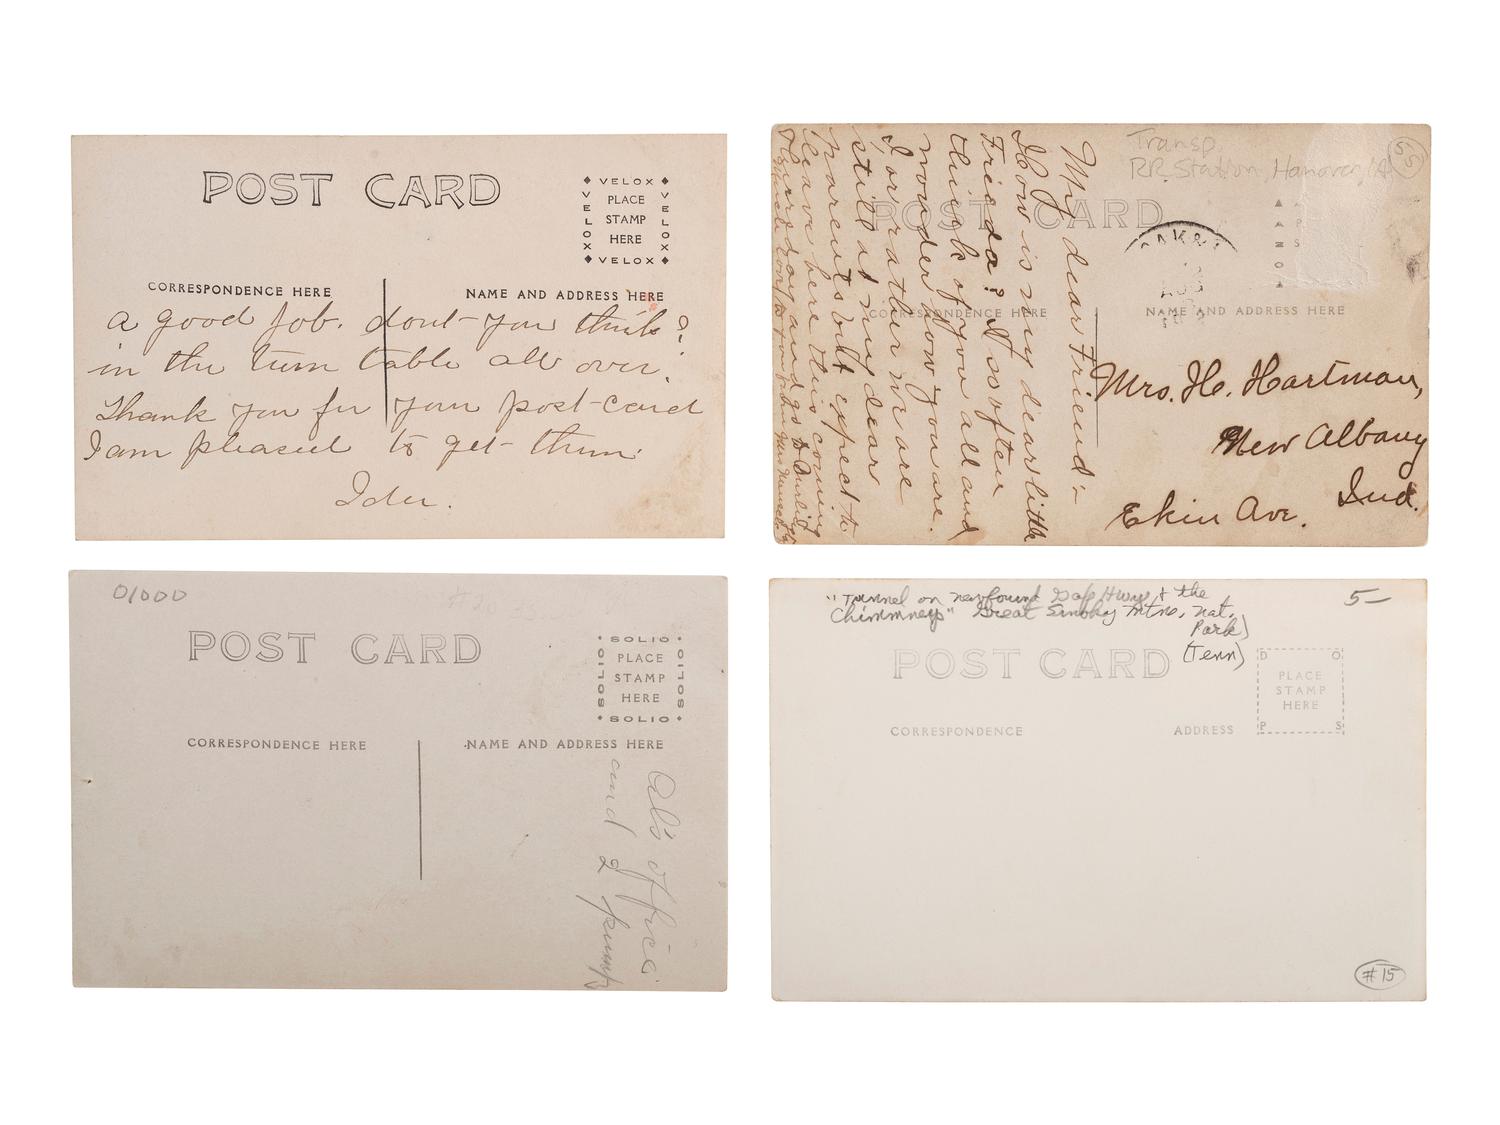 POST CARD
VELOX VELOX VELOX VELOX
PLACE
STAMP
HERE
CORRESPONDENCE HERE
NAME AND ADDRESS HERE
A good job. dont you think?
in the turn table all over.
Thank you for your post-card
I am pleased to get them.
Transp.
RR Station, Hanover,
55
POST CARD
CORRESPONDENCE HERE
NAME AND ADDRESS HERE
My dear Friend:-
How is my dear little
Frieda? I so often
think of you all and
wonder how you are.
I or rather we are
still at my dear
parents but expect to
leave here this coming
Mrs. H. Hartman,
New Albany
Ind.
Ekin Ave.
01000
POST CARD
SOLIO SOLIO SOLIO SOLIO
PLACE
STAMP
HERE
CORRESPONDENCE HERE
NAME AND ADDRESS HERE
Al's office
and 2 pumps
"Tunnel on newfound Gap Hwy & the
Chimmneys" Great Smoky Mtns, Nat.
Park)
(Tenn)
5-
POST CARD
D O P S
PLACE
STAMP
HERE
CORRESPONDENCE
ADDRESS
#15